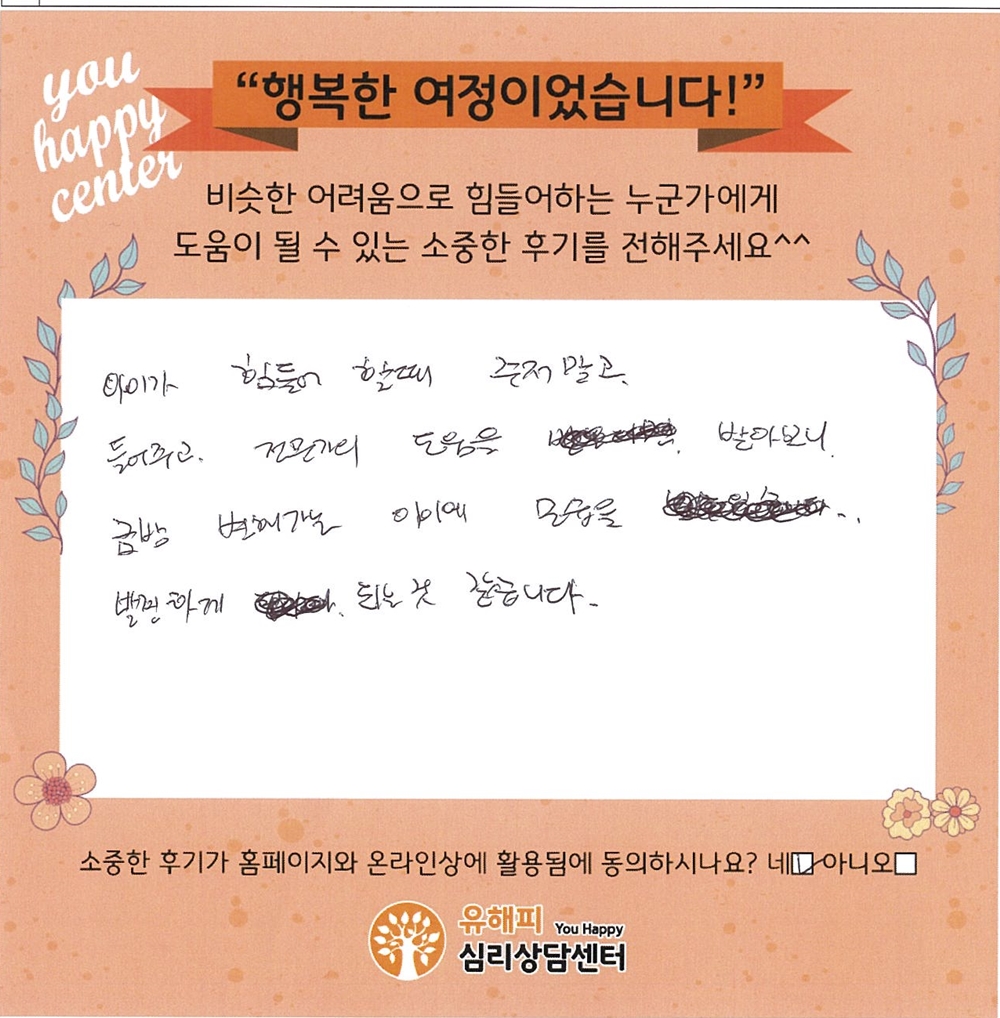 you
happy
center
“행복한 여정이었습니다!”
비슷한 어려움으로 힘들어하는 누군가에게
도움이 될 수 있는 소중한 후기를 전해주세요^^
아이가 힘들어 할때 주저말고.
들어주고. 전문가의 도움을 받아보니.
금방 변해가는 아이에 모습을
발견하게 되는 것 같습니다.
소중한 후기가 홈페이지와 온라인상에 활용됨에 동의하시나요? 네 아니오
유해피 You Happy
심리상담센터